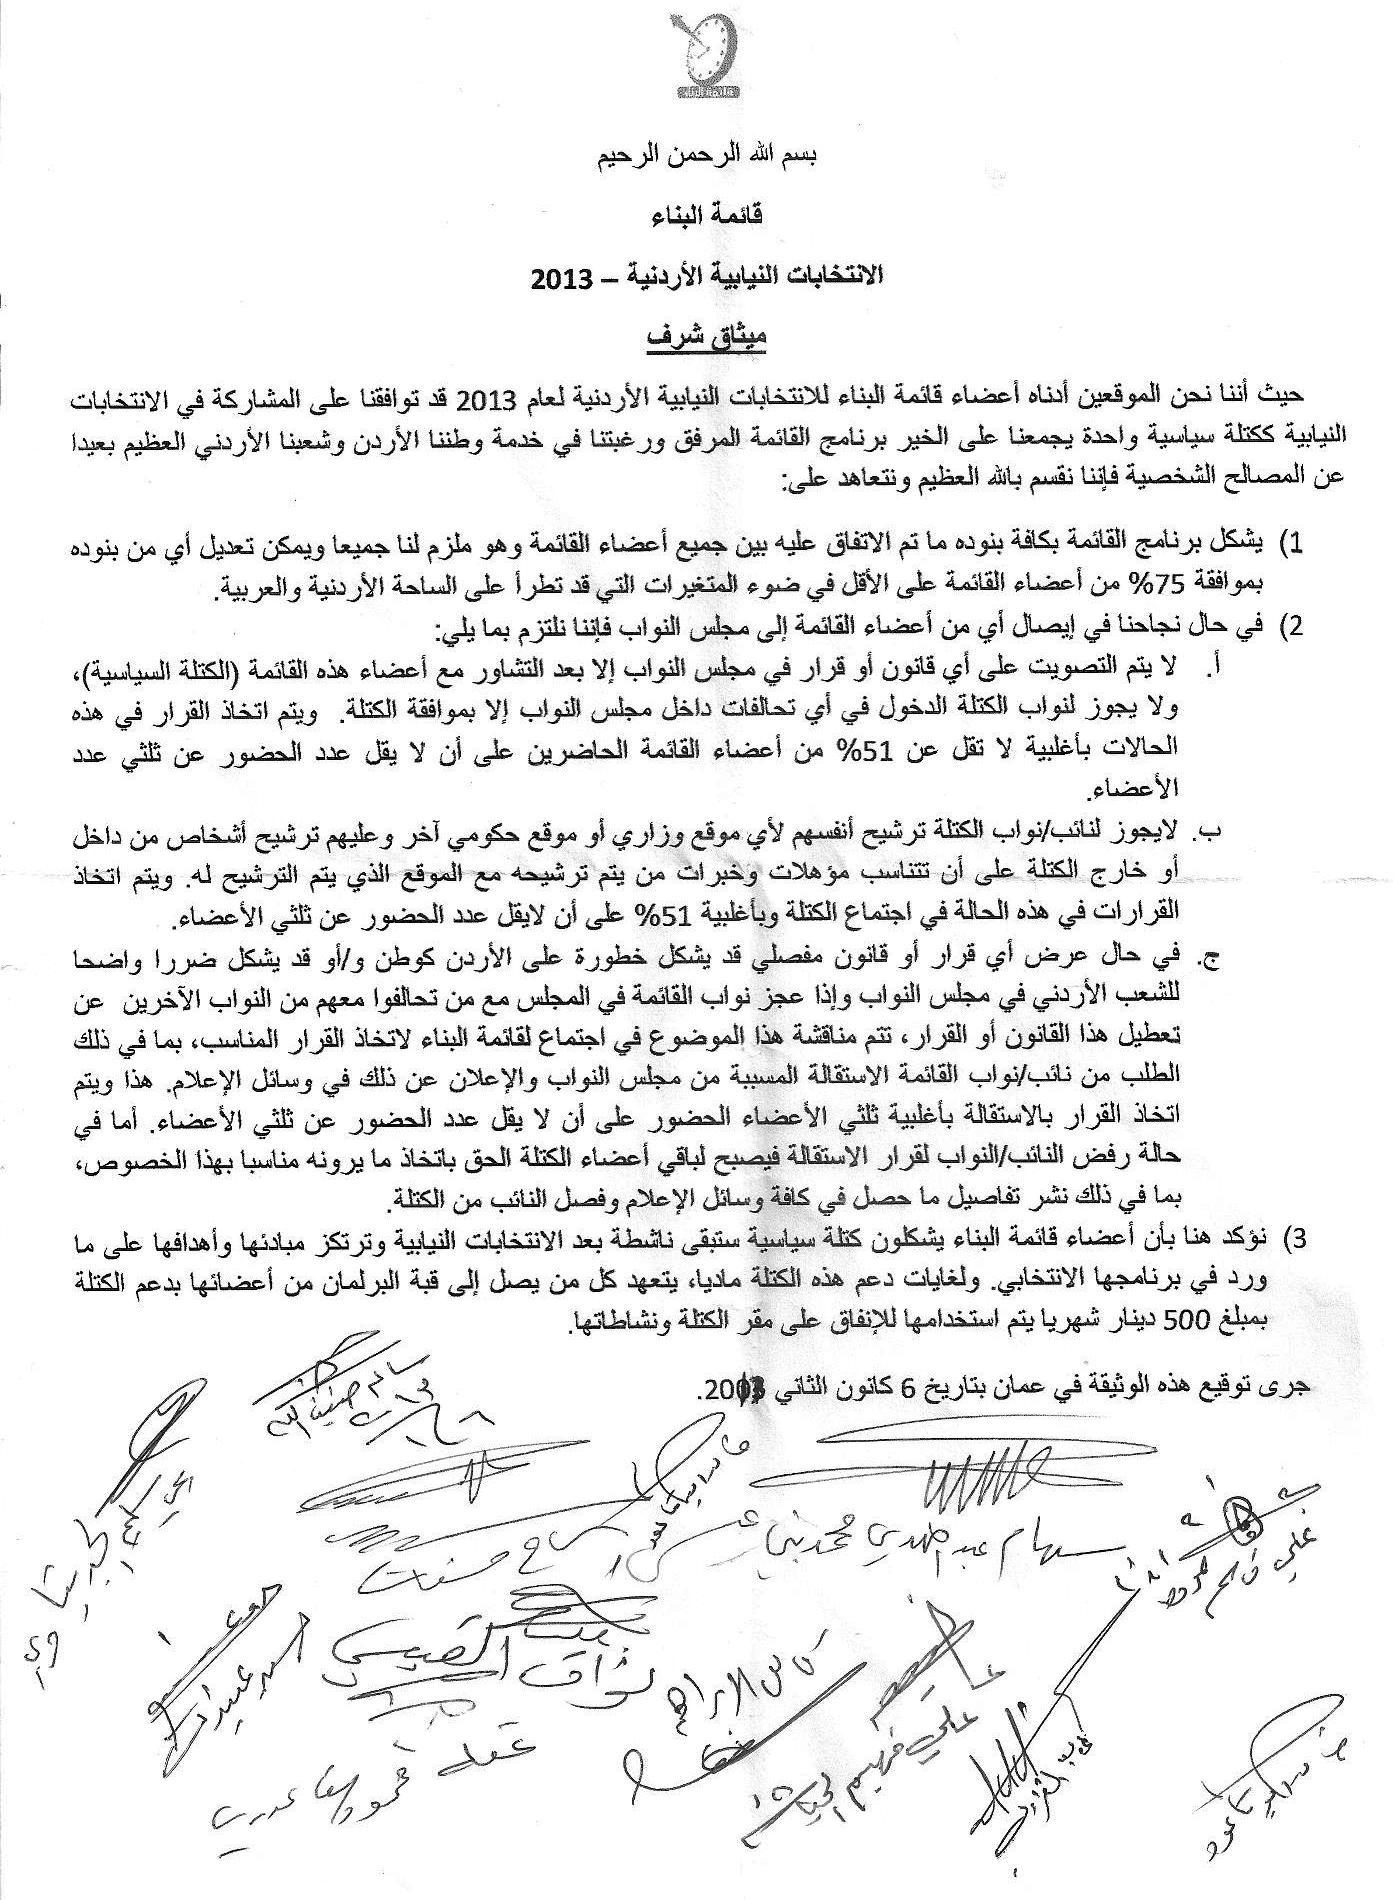 بسم الله الرحمن الرحيم
قائمة البناء
الانتخابات النيابية الأردنية – 2013
ميثاق شرف
حيث أننا نحن الموقعين أدناه أعضاء قائمة البناء للانتخابات النيابية الأردنية لعام 2013 قد توافقنا على المشاركة في الانتخابات
النيابية ككتلة سياسية واحدة يجمعنا على الخير برنامج القائمة المرفق ورغبتنا في خدمة وطننا الأردن وشعبنا الأردني العظيم بعيدا
عن المصالح الشخصية فإننا نقسم بالله العظيم ونتعاهد على:
1) يشكل برنامج القائمة بكافة بنوده ما تم الاتفاق عليه بين جميع أعضاء القائمة وهو ملزم لنا جميعا ويمكن تعديل أي من بنوده
بموافقة 75% من أعضاء القائمة على الأقل في ضوء المتغيرات التي قد تطرأ على الساحة الأردنية والعربية.
2) في حال نجاحنا في إيصال أي من أعضاء القائمة إلى مجلس النواب فإننا نلتزم بما يلي:
أ. لا يتم التصويت على أي قانون أو قرار في مجلس النواب إلا بعد التشاور مع أعضاء هذه القائمة (الكتلة السياسية)،
ولا يجوز لنواب الكتلة الدخول في أي تحالفات داخل مجلس النواب إلا بموافقة الكتلة. ويتم اتخاذ القرار في هذه
الحالات بأغلبية لا تقل عن 51% من أعضاء القائمة الحاضرين على أن لا يقل عدد الحضور عن ثلثي عدد
الأعضاء.
ب. لايجوز لنائب/نواب الكتلة ترشيح أنفسهم لأي موقع وزاري أو موقع حكومي آخر وعليهم ترشيح أشخاص من داخل
أو خارج الكتلة على أن تتناسب مؤهلات وخبرات من يتم ترشيحه مع الموقع الذي يتم الترشيح له. ويتم اتخاذ
القرارات في هذه الحالة في اجتماع الكتلة وبأغلبية 51% على أن لايقل عدد الحضور عن ثلثي الأعضاء.
ج. في حال عرض أي قرار أو قانون مفصلي قد يشكل خطورة على الأردن كوطن و/أو قد يشكل ضررا واضحا
للشعب الأردني في مجلس النواب وإذا عجز نواب القائمة في المجلس مع من تحالفوا معهم من النواب الآخرين عن
تعطيل هذا القانون أو القرار، تتم مناقشة هذا الموضوع في اجتماع لقائمة البناء لاتخاذ القرار المناسب، بما في ذلك
الطلب من نائب/نواب القائمة الاستقالة المسببة من مجلس النواب والإعلان عن ذلك في وسائل الإعلام. هذا ويتم
اتخاذ القرار بالاستقالة بأغلبية ثلثي الأعضاء الحضور على أن لا يقل عدد الحضور عن ثلثي الأعضاء. أما في
حالة رفض النائب/النواب لقرار الاستقالة فيصبح لباقي أعضاء الكتلة الحق باتخاذ ما يرونه مناسبا بهذا الخصوص،
بما في ذلك نشر تفاصيل ما حصل في كافة وسائل الإعلام وفصل النائب من الكتلة.
3) نؤكد هنا بأن أعضاء قائمة البناء يشكلون كتلة سياسية ستبقى ناشطة بعد الانتخابات النيابية وترتكز مبادئها وأهدافها على ما
ورد في برنامجها الانتخابي. ولغايات دعم هذه الكتلة ماديا، يتعهد كل من يصل إلى قبة البرلمان من أعضائها بدعم الكتلة
بمبلغ 500 دينار شهريا يتم استخدامها للإنفاق على مقر الكتلة ونشاطاتها.
جرى توقيع هذه الوثيقة في عمان بتاريخ 6 كانون الثاني 2013.
سهام عبد الهدي محمد بني
نواف القيسي
علي فهيم
عقله محمود